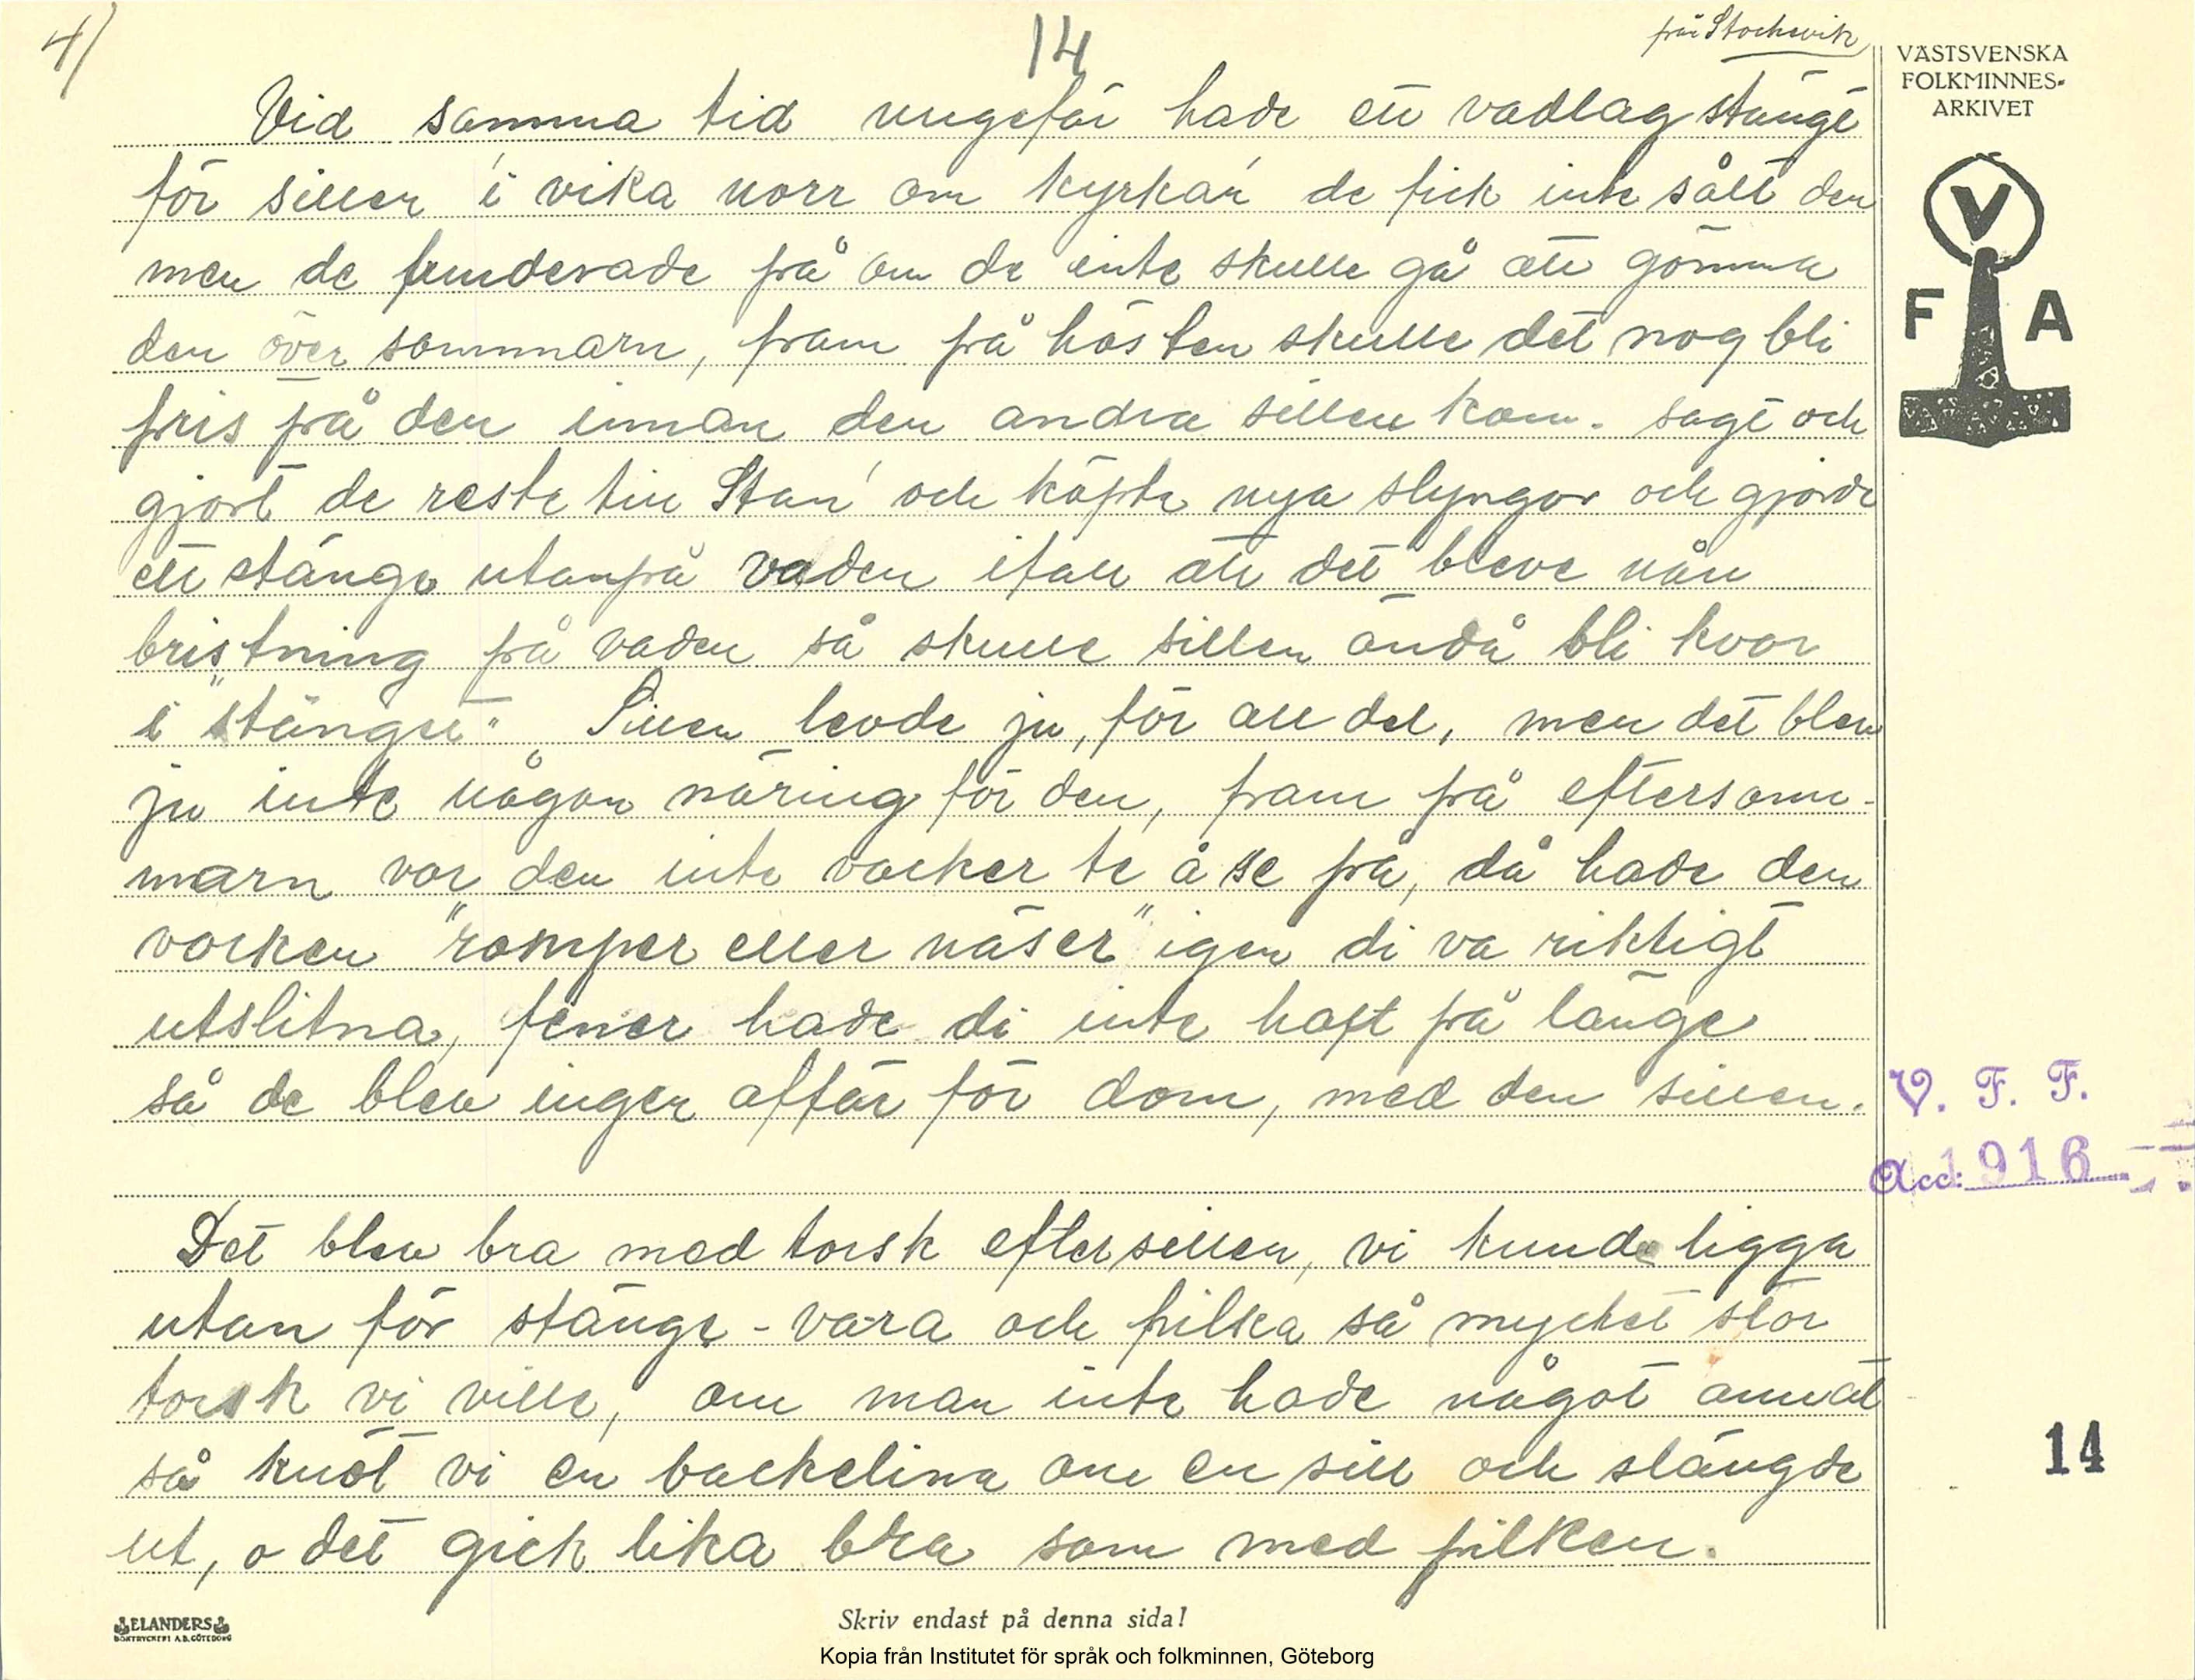 4/
14
från Stockevik
VÄSTSVENSKA
FOLKMINNES-
ARKIVET
V
F A
Vid samma tid ungefär hade ett vadlag stängt
för sillen i vika norr om kyrkan' de fick inte sålt den
men de funderade på om de inte skulle gå att gömma
den över sommarn, fram på hösten skulle det nog bli
pris på den innan den andra sillen kom. sagt och
gjort de reste till Stan' och köpte nya slyngor och gjorde
ett stänge utanpå vaden ifall att det bleve nån
bristning på vaden så skulle sillen ändå bli kvar
i "stänget" Sillen levde ju, för all del, men det blev
ju inte någon näring för den, fram på eftersom-
marn var den inte vacker te å se på, då hade den
vorken "romper eller näser" igen di va riktigt
utslitna, fener hade di inte haft på länge
så de blev ingen affär för dom, med den sillen.
V. F. F.
Acc: 1916
Det blev bra med torsk efter sillen, vi kunde ligga
utan för stänge-vara och pilka så mycket stor
torsk vi ville, om man inte hade något annat
så knöt vi en backelina om en sill och slängde
ut, o det gick lika bra som med pilken.
14
ELANDERS
BOKTRYCKERI A.B. GÖTEBORG
Skriv endast på denna sida!
Kopia från Institutet för språk och folkminnen, Göteborg